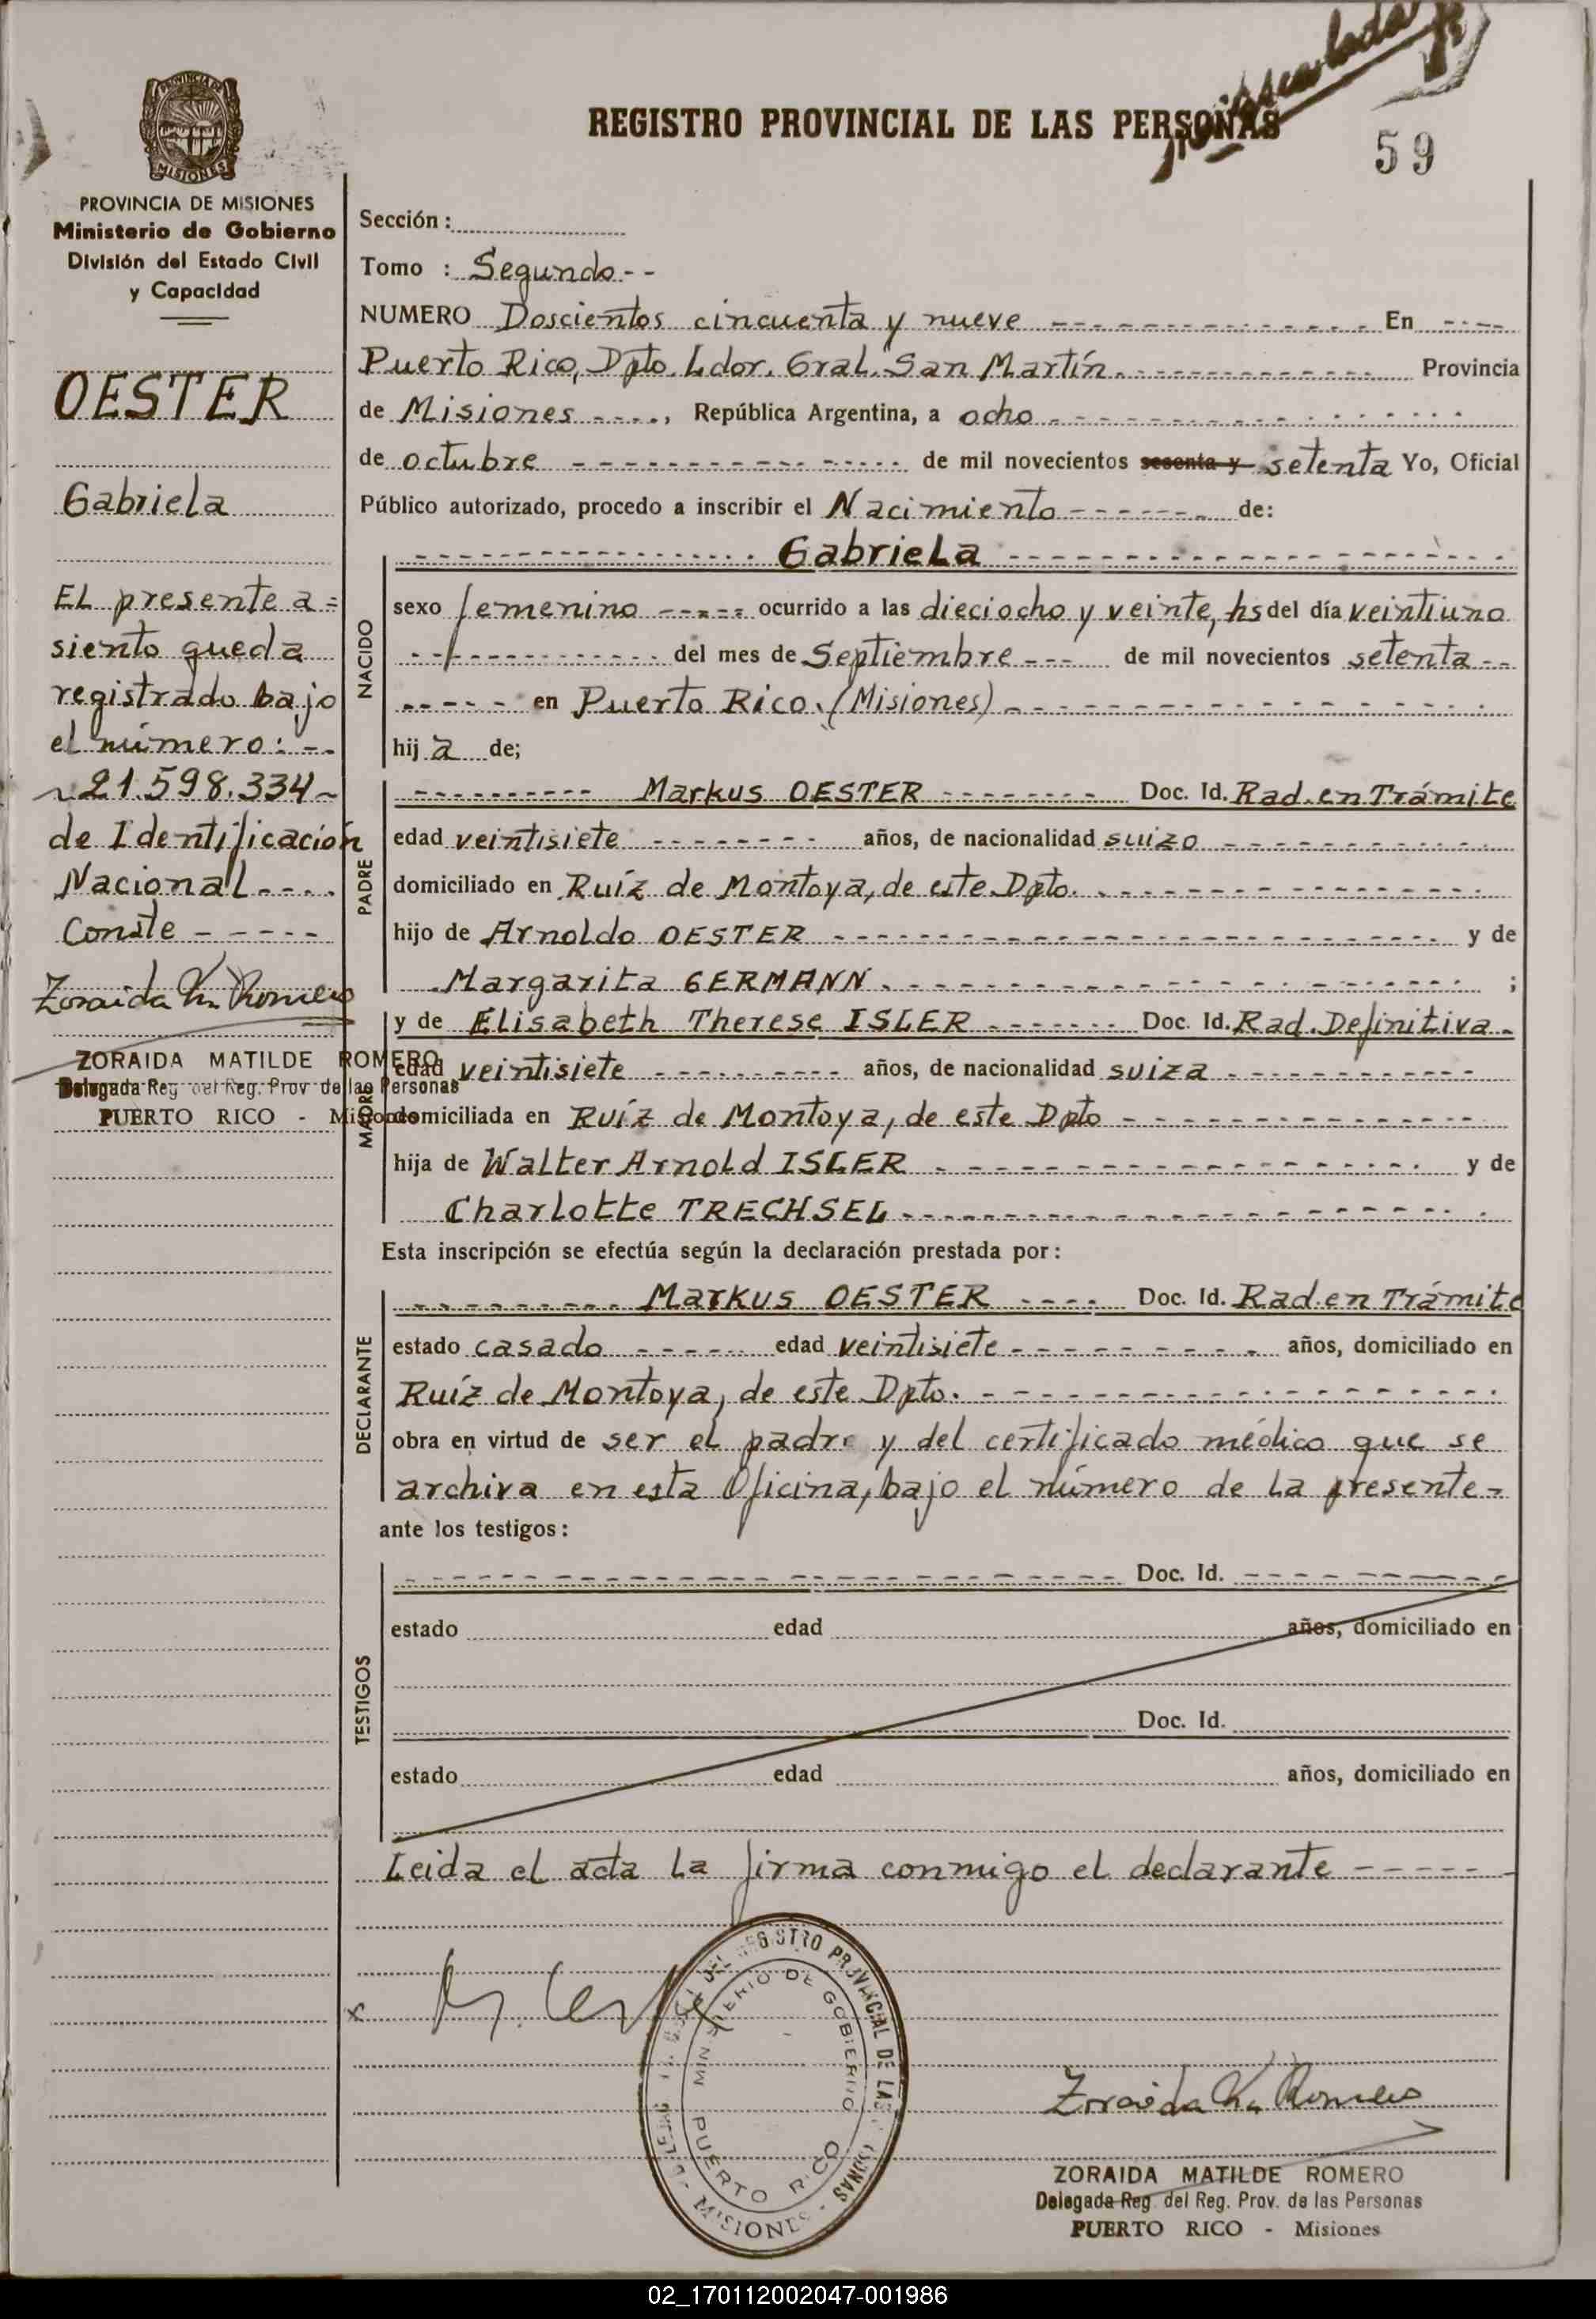 REGISTRO PROVINCIAL DE LAS PERSONAS
59
PROVINCIA DE MISIONES
Ministerio de Gobierno
División del Estado Civil
y Capacidad
OESTER
Gabriela
El presente a=
siento queda
registrado bajo
el número: --
~21.598.334~
de Identificación
Nacional----
Conste -----
Zoraida M. Romero
ZORAIDA MATILDE ROMERO
Delegada Reg. del Reg. Prov. de las Personas
PUERTO RICO - Misiones
Sección:
Tomo : Segundo--
NUMERO Doscientos cincuenta y nueve ---- En ----
Puerto Rico, Dpto. Ldor. Gral. San Martín. ---- Provincia
de Misiones ----, República Argentina, a ocho ----
de octubre ---- de mil novecientos sesenta y setenta Yo, Oficial
Público autorizado, procedo a inscribir el Nacimiento ---- de:
NACIDO
---- Gabriela ----
sexo femenino ---- ocurrido a las dieciocho y veinte, hs del día veintiuno
---- del mes de Septiembre --- de mil novecientos setenta --
---- en Puerto Rico. (Misiones) ----
hij a de;
PADRE
---- Markus OESTER ---- Doc. Id. Rad. en Trámite
edad veintisiete ---- años, de nacionalidad suizo ----
domiciliado en Ruíz de Montoya, de este Dpto. ----
hijo de Arnoldo OESTER ---- y de
Margarita GERMANN. ---- ;
MADRE
y de Elisabeth Therese ISLER ---- Doc. Id. Rad. Definitiva.
edad veintisiete ---- años, de nacionalidad suiza ----
domiciliada en Ruíz de Montoya, de este Dpto ----
hija de Walter Arnold ISLER ---- y de
Charlotte TRECHSEL ----
Esta inscripción se efectúa según la declaración prestada por:
DECLARANTE
---- Markus OESTER ---- Doc. Id. Rad. en Trámite
estado casado ---- edad veintisiete ---- años, domiciliado en
Ruíz de Montoya, de este Dpto. ----
obra en virtud de ser el padre y del certificado médico que se
archiva en esta Oficina, bajo el número de la presente-
ante los testigos:
TESTIGOS
---- Doc. Id. ----
estado edad años, domiciliado en
Doc. Id.
estado edad años, domiciliado en
Leida el acta la firma conmigo el declarante -----
x
DEL REGISTRO PROVINCIAL DE LAS PERSONAS - MISIONES
MINISTERIO DE GOBIERNO
PUERTO RICO
Zoraida M. Romero
ZORAIDA MATILDE ROMERO
Delegada Reg. del Reg. Prov. de las Personas
PUERTO RICO - Misiones
02_170112002047-001986